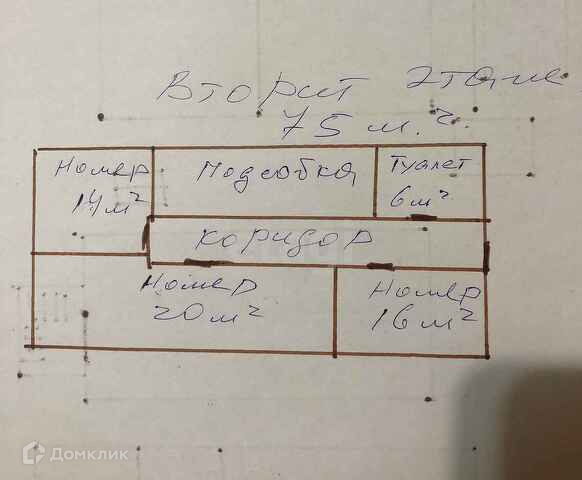 Вторит этаж
75 м.г.
Номер
14 м²
Подсобка
Туалет
6 м²
коридор
Номер
20 м²
Номер
16 м²
Домклик